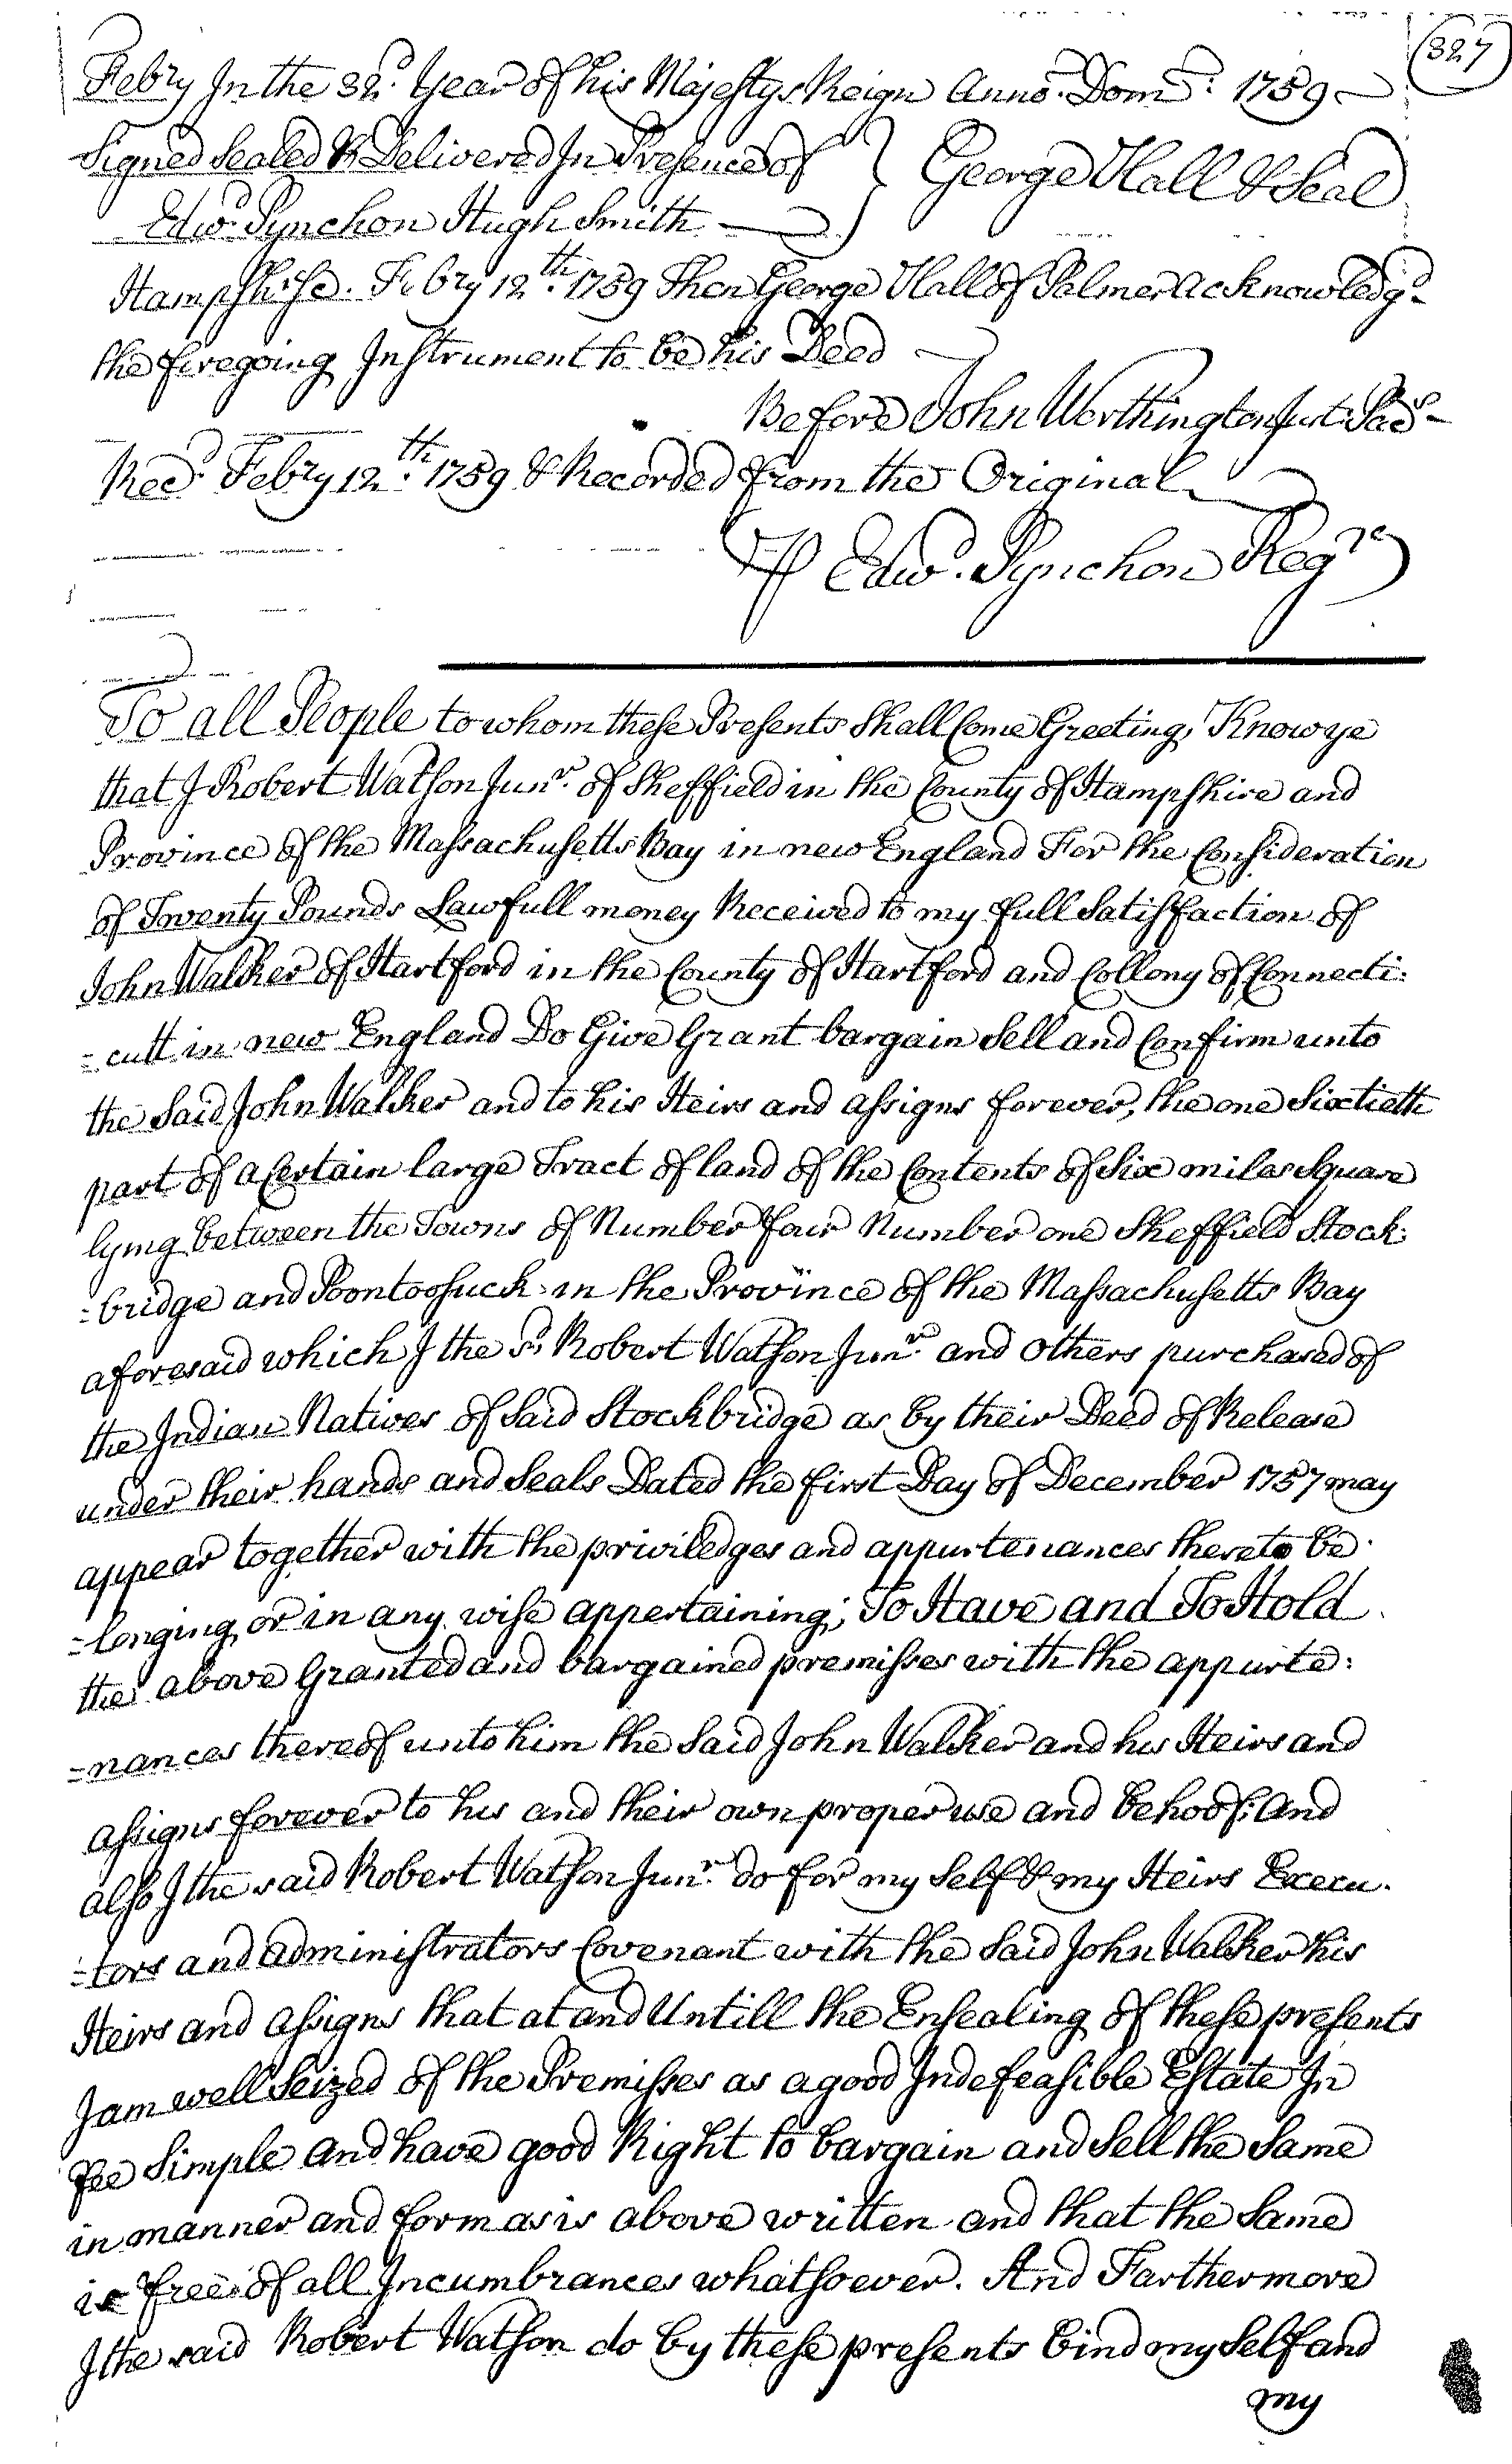 327
Febry In the 32d. Year of his Majestys Reign Anno. Domi: 1759
Signed Sealed & Delivered In Presence of } George Hall & Seal
Edwd. Pynchon Hugh Smith
Hampshire. Febry 12th. 1759 Then George Hall of Palmer acknowledgd.
the foregoing Instrument to be his Deed
Before John Worthington Just: Pacs
Recd. Febry 12th. 1759 & Recorded from the Original
⅌ Edwd. Pynchon Regr
To all People to whom these Presents Shall Come Greeting, Know ye
that I Robert Watson Junr. of Sheffield in the County of Hampshire and
Province of the Massachusetts Bay in new England For the Consideration
of Twenty Pounds Lawfull money Received to my full Satisfaction of
John Walker of Hartford in the County of Hartford and Collony of Connecti:
=cutt in new England Do Give Grant bargain Sell and Confirm unto
the Said John Walker and to his Heirs and assigns forever, the one Sixtieth
part of a Certain large Tract of land of the Contents of Six miles Square
lying between the Towns of Number four Number one Sheffield Stock:
=bridge and Poontoosuck in the Province of the Massachusetts Bay
aforesaid which I the sd. Robert Watson Junr. and others purchased of
the Indian Natives of Said Stockbridge as by their Deed of Release
under their hands and Seals Dated the first Day of December 1757 may
appear together with the priviledges and appurtenances thereto be
=longing or in any wise appertaining; To Have and To Hold
the above Granted and bargained premisses with the appurte:
=nances thereof unto him the Said John Walker and his Heirs and
assigns forever to his and their own proper use and behoof; And
also I the said Robert Watson Junr. do for my Self & my Heirs Execu.
=tors and administrators Covenant with the Said John Walker his
Heirs and assigns that at and Untill the Ensealing of these presents
I am well Seized of the Premisses as a good Indefeasible Estate In
Fee Simple and have good Right to bargain and Sell the Same
in manner and form as is above written and that the Same
is free of all Incumbrances whatsoever. And Farthermore
I the said Robert Watson do by these presents bind my Self and
my